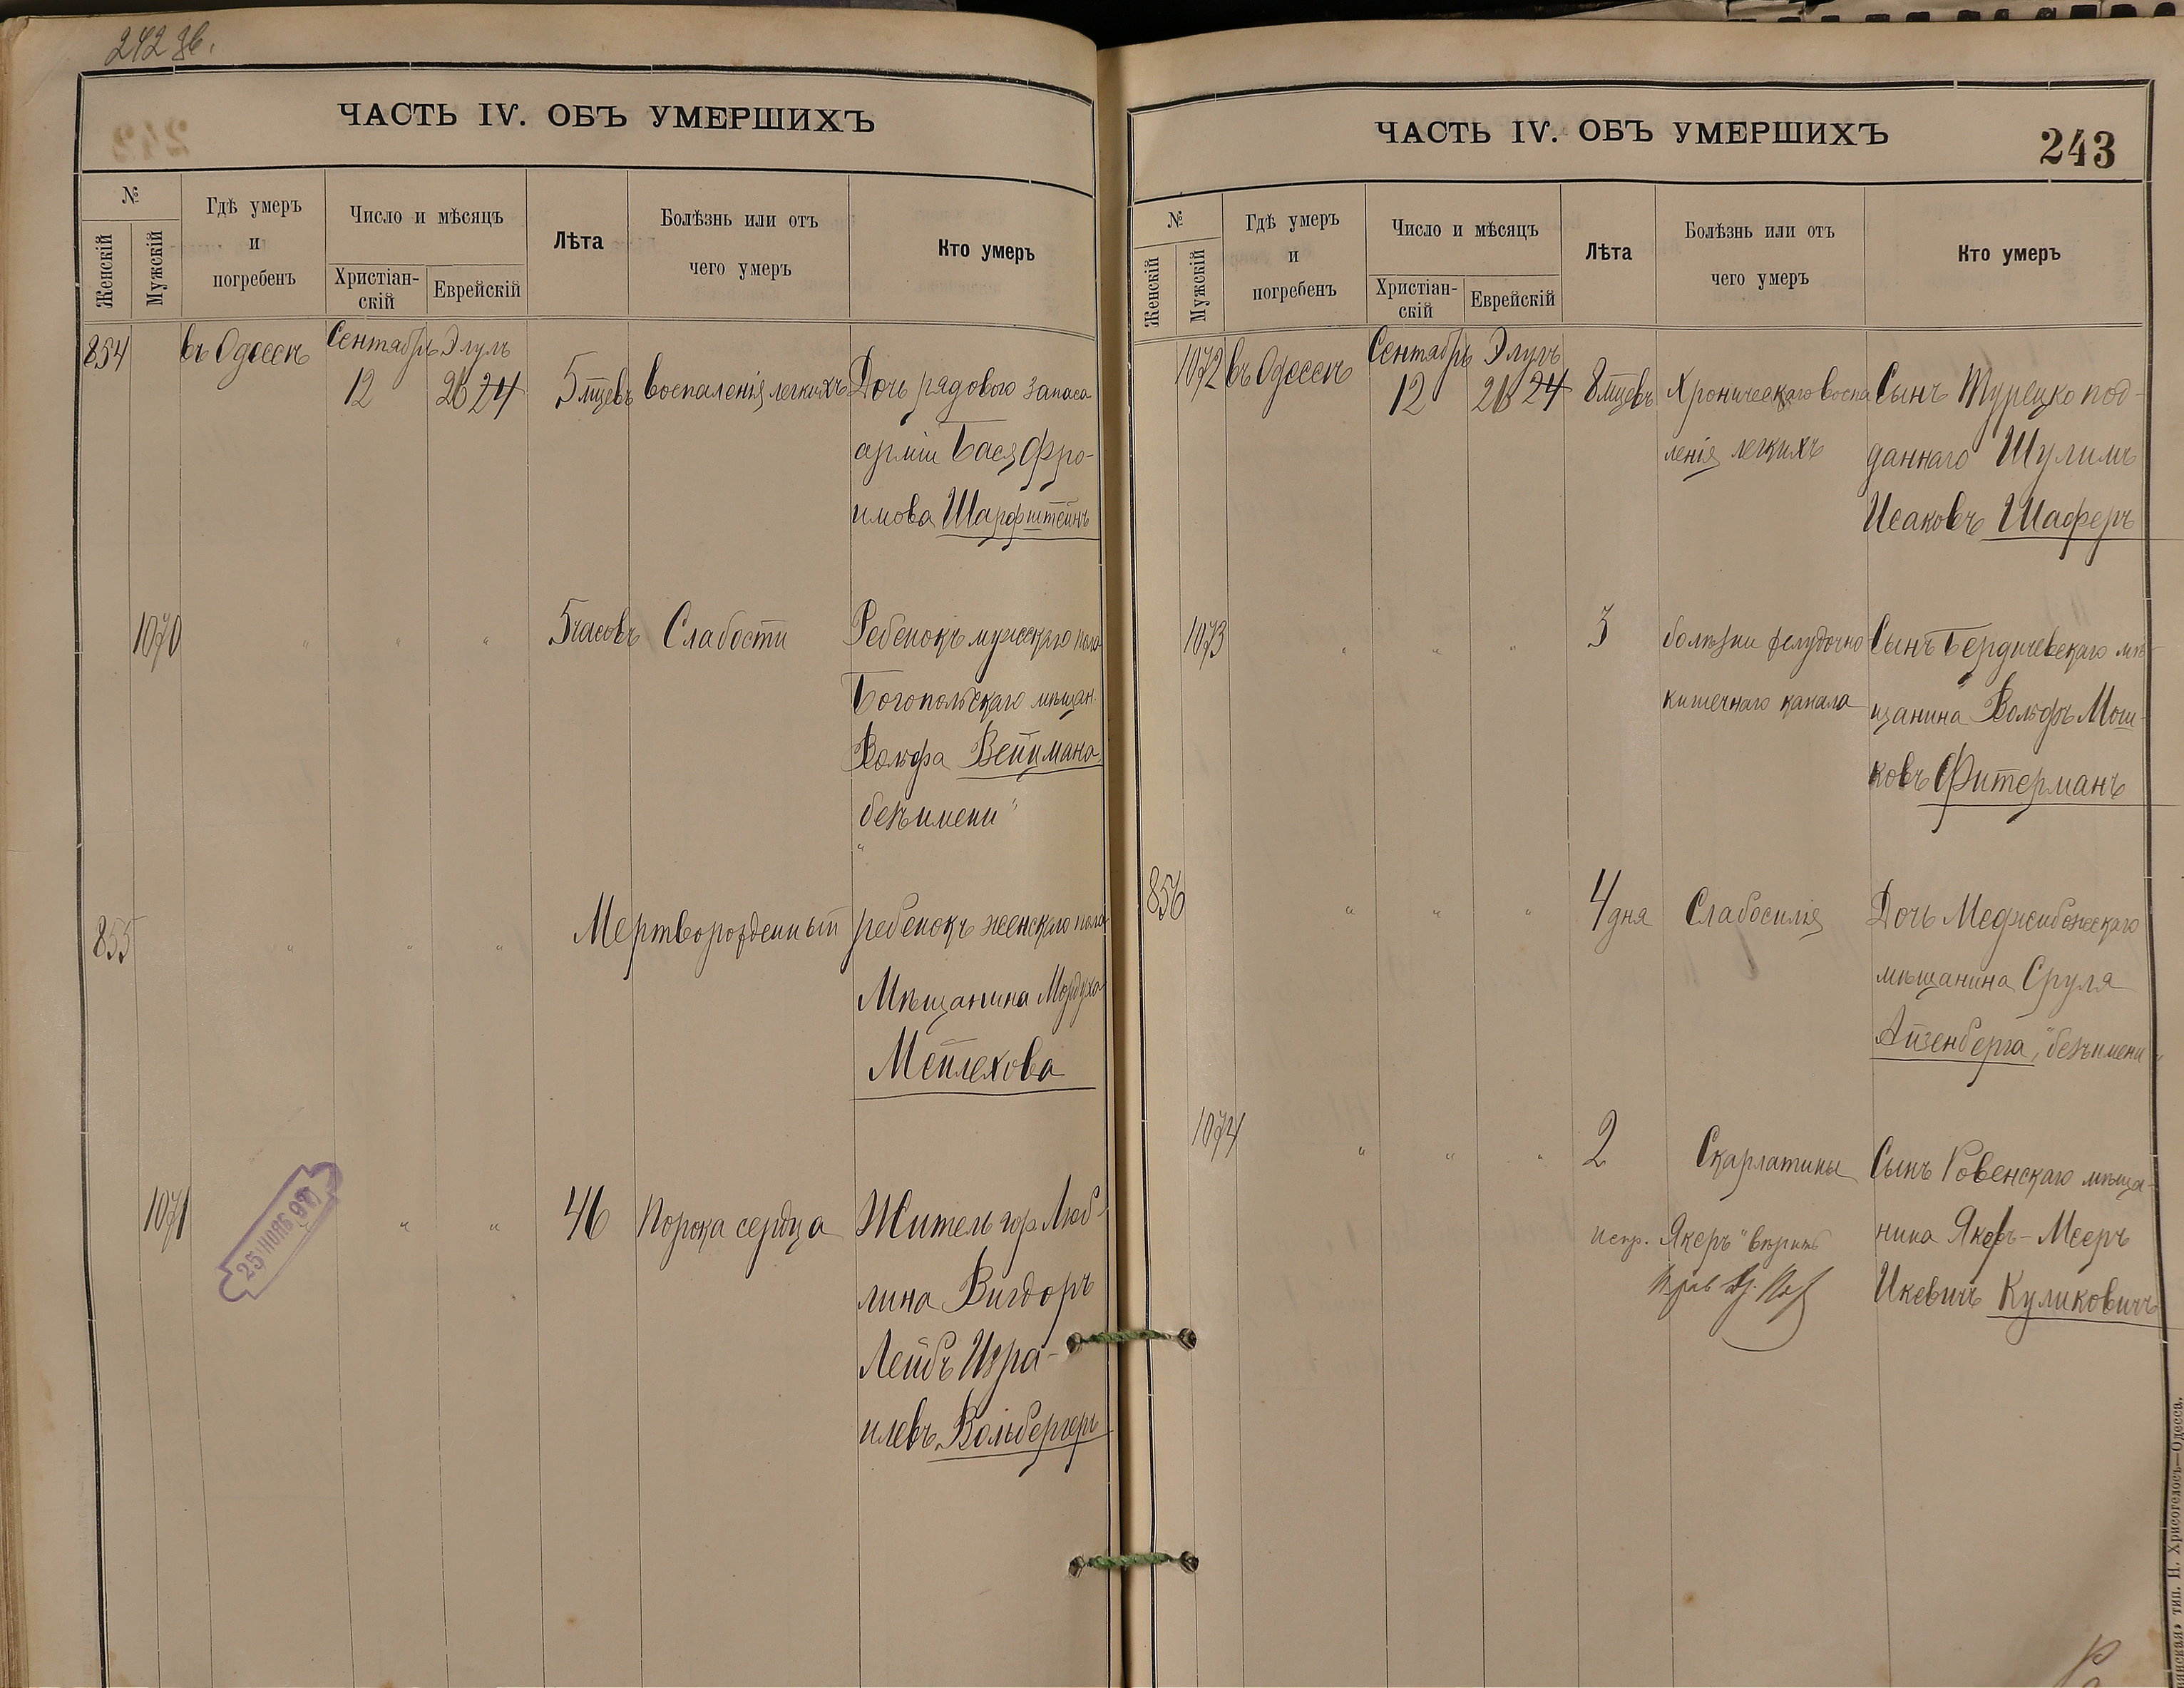 242 об.
ЧАСТЬ IV. ОБЪ УМЕРШИХЪ
№
Женскій
Мужскій
Гдѣ умеръ
и
погребенъ
Число и мѣсяцъ
Христіан-
скій
Еврейскій
Лѣта
Болѣзнь или отъ
чего умеръ
Кто умеръ
854 въ Одессѣ Сентябрь Элулъ
12 24 5 мцевъ воспаленія легкихъ Дочь рядового запаса
арміи Бася Фро-
имова Шарфштейнъ
1070 " " " 5 часовъ Слабости Ребенокъ мужскаго пола
Богопольскаго мѣщан.
Вольфа Веицмана
"безъ имени"
855 " " " Мертворожденный ребенокъ женскаго пола
Мѣщанина Мордуха
Меилехова
1071 " " 46 Порока сердца Житель гор Люб-
лина Вигдоръ
Лейбъ Изра-
илевъ Вольбергеръ
25 НОЯБ 97
ЧАСТЬ IV. ОБЪ УМЕРШИХЪ
243
№
Женскій
Мужскій
Гдѣ умеръ
и
погребенъ
Число и мѣсяцъ
Христіан-
скій
Еврейскій
Лѣта
Болѣзнь или отъ
чего умеръ
Кто умеръ
1072 въ Одессѣ Сентябрь Элулъ
12 24 8 мцевъ Хроническаго воспа Сынъ Турецко под-
ленія легкихъ даннаго Шулимъ
Исаковъ Шаферъ
1073 " " " 3 болѣзни желудочно Сынъ Бердичевскаго мѣ-
кишечнаго канала щанина Вольфъ Мош-
ковъ Фитерманъ
856 " " " 4 дня Слабосилія Дочь Меджибожскаго
мѣщанина Сруля
Айзенберга, "безъ имени"
1074 " " " 2 Скарлатины Сынъ Ровенскаго мѣща-
испр. "Якеръ" вѣрить нина Якеръ-Мееръ
Икевичъ Куликовичъ
тип. И. Хрисогелосъ—Одесса.